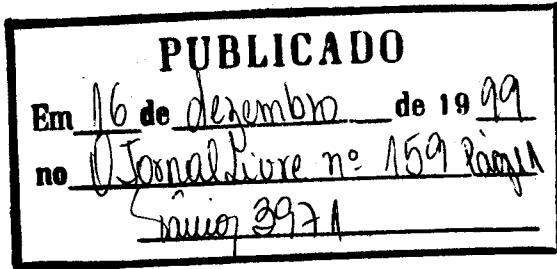 PUBLICADO
Em 16 de dezembro de 19 99
no O Jornal Livre nº 159
3971